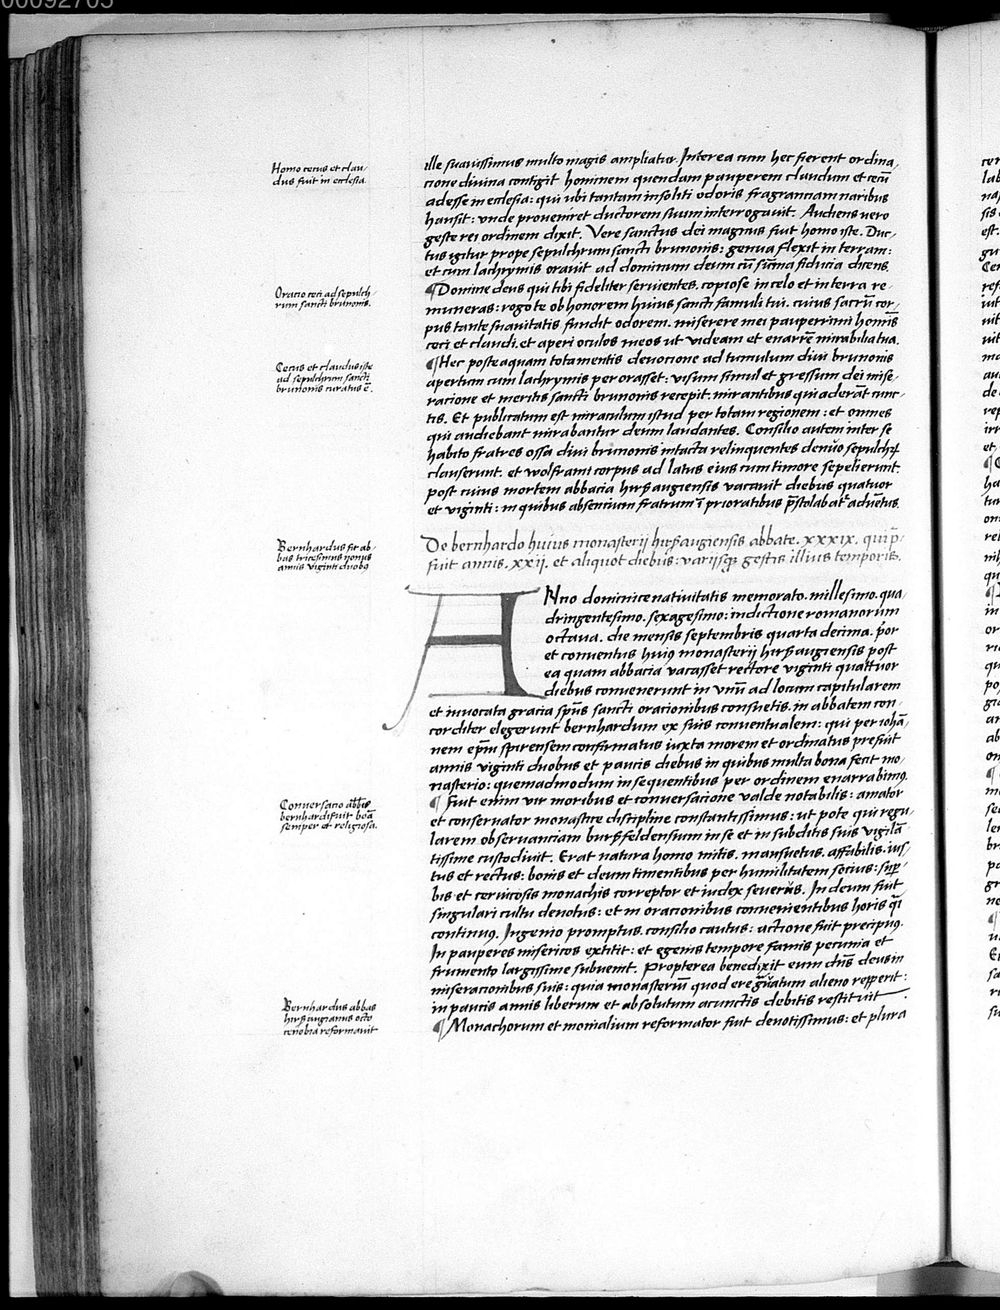 00092705
Homo cecus et clau-
dus fuit in ecclesia.
ille suauissimus multo magis ampliatur. Interea cum hec fierent ordina,
cione diuina contigit hominem quendam pauperem claudum et cecū
adesse in ecclesia: qui ubi tantam insoliti odoris fragranciam naribus
hausit: unde proueniret ductorem suum interrogauit. Audiens uero
geste rei ordinem dixit. Vere sanctus dei magnus fuit homo iste. Duc-
tus igitur prope sepulchrum sancti brunonis: genua flexit in terram:
et cum lachrymis orauit ad dominum deum cū sūma fiducia dicens.
Oracio ceci ad sepulch-
rum sancti brunonis.
¶Domine deus qui tibi fideliter seruientes, copiose in celo et in terra re-
muneras: rogo te ob honorem huius sancti famuli tui, cuius sacrū cor-
pus tante suauitatis fundit odorem, miserere mei pauperrimi hominis
ceci et claudi, et aperi oculos meos ut videam et enarrem mirabilia tua.
Cecus et claudus iste
ad sepulchrum sancti
brunonis curatus ē.
¶Hec postea quam tota mentis deuocione ad tumulum diui brunonis
apertum cum lachrymis perorasset: uisum simul et gressum dei mise-
racione et meritis sancti brunonis recepit: mirantibus qui aderāt cunc-
tis. Et publicatum est miraculum istud per totam regionem: et omnes
qui audiebant mirabantur deum laudantes. Consilio autem inter se
habito fratres ossa diui brunonis intacta relinquentes denuo sepulchrꝝ
clauserunt, et wolframi corpus ad latus eius cum timore sepelierunt.
post cuius mortem abbacia hirsaugiensis vacauit diebus quatuor
et viginti: in quibus absencium fratrum ī prioratibus p̄stolabat͛ aduētus.
Bernhardus fit ab-
bas tricesimus nonus
annis viginti duobꝰ
De bernhardo huius monasterij hirsaugiensis abbate. xxxix. qui p̄-
fuit annis. xxii. et aliquot diebus: varijsqꝫ gestis illius temporis.
ANno dominice natiuitatis memorato. millesimo. qua-
dringentesimo. sexagesimo: indictione romanorum
octaua. die mensis septembris quarta decima. p̄or
et conuentus huiꝰ monasterij hirsaugiensis post
ea quam abbacia vacasset rectore viginti quattuor
diebus conuenerunt in vnū ad locum capitularem
et inuocata gracia sp̄us sancti oracionibus consuetis, in abbatem con-
corditer elegerunt bernhardum ex suis conuentualem: qui per iohā-
nem ep̄m spirensem confirmatus iuxta morem et ordinatus prefuit
annis viginti duobus et paucis diebus in quibus multa bona fecit mo-
nasterio: quemadmodum in sequentibus per ordinem enarrabimꝰ.
Conuersacio abb̄is
bernhardi fuit bona
semper et religiosa.
¶ Fuit enim vir moribus et conuersacione valde notabilis: amator
et conseruator monastice discipline constantissimus: ut pote qui regu-
larem obseruanciam bursfeldensium in se et in subditis suis vigilā-
tissime custodiuit. Erat natura homo mitis, mansuetus, affabilis, ius-
tus et rectus: bonis et deum timentibus per humilitatem socius: sup̄-
bis et ceruicosis monachis correptor et iudex seuerus. In deum fuit
singulari cultu deuotus: et in oracionibus conuenientibus horis q̄si
continuꝰ. Ingenio promptus, consilio cautus: actione fuit precipuꝰ.
In pauperes misericos extitit: et egenis tempore famis pecunia et
frumento largissime subuenit. Propterea benedixit eum dn̄s deus in
miseracionibus suis: quia monasteriū quod ere grauatum alieno repperit:
in paucis annis liberum et absolutum a cunctis debitis restituit
Bernhardus abbas
hirsaugianus octo
cenobia reformauit
¶Monachorum et monialium reformator fuit deuotissimus: et plura